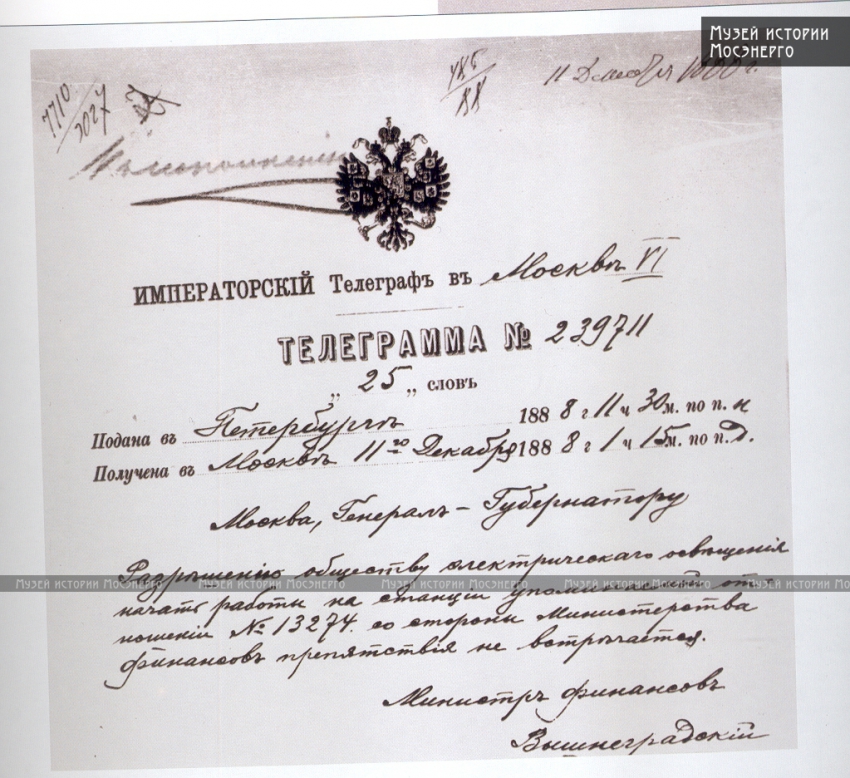 Музей истории
Мосэнерго
7710
3027
485
88
11 Декабря 1888 г.
Къ исполненію
ИМПЕРАТОРСКІЙ Телеграфъ въ Москвѣ VI
ТЕЛЕГРАММА № 239711
„ 25 „ словъ
Подана въ Петербургѣ 1888 г 11 ч 30 м. по п. н
Получена въ Москвѣ 11го Декабря 1888 г 1 ч 15 м. по п. д.
Москва, Генералъ-Губернатору
Разрѣшенію обществу электрическаго освѣщенія
Музей истории Мосэнерго Музей истории Мосэнерго Музей истории Мосэнерго Музей истории Мосэнерго
начать работы на станціи упомянутой от
ношеніи № 13274. со стороны Министерства
Финансовъ препятствія не встрѣчается.
Министръ финансовъ
Вышнеградскій